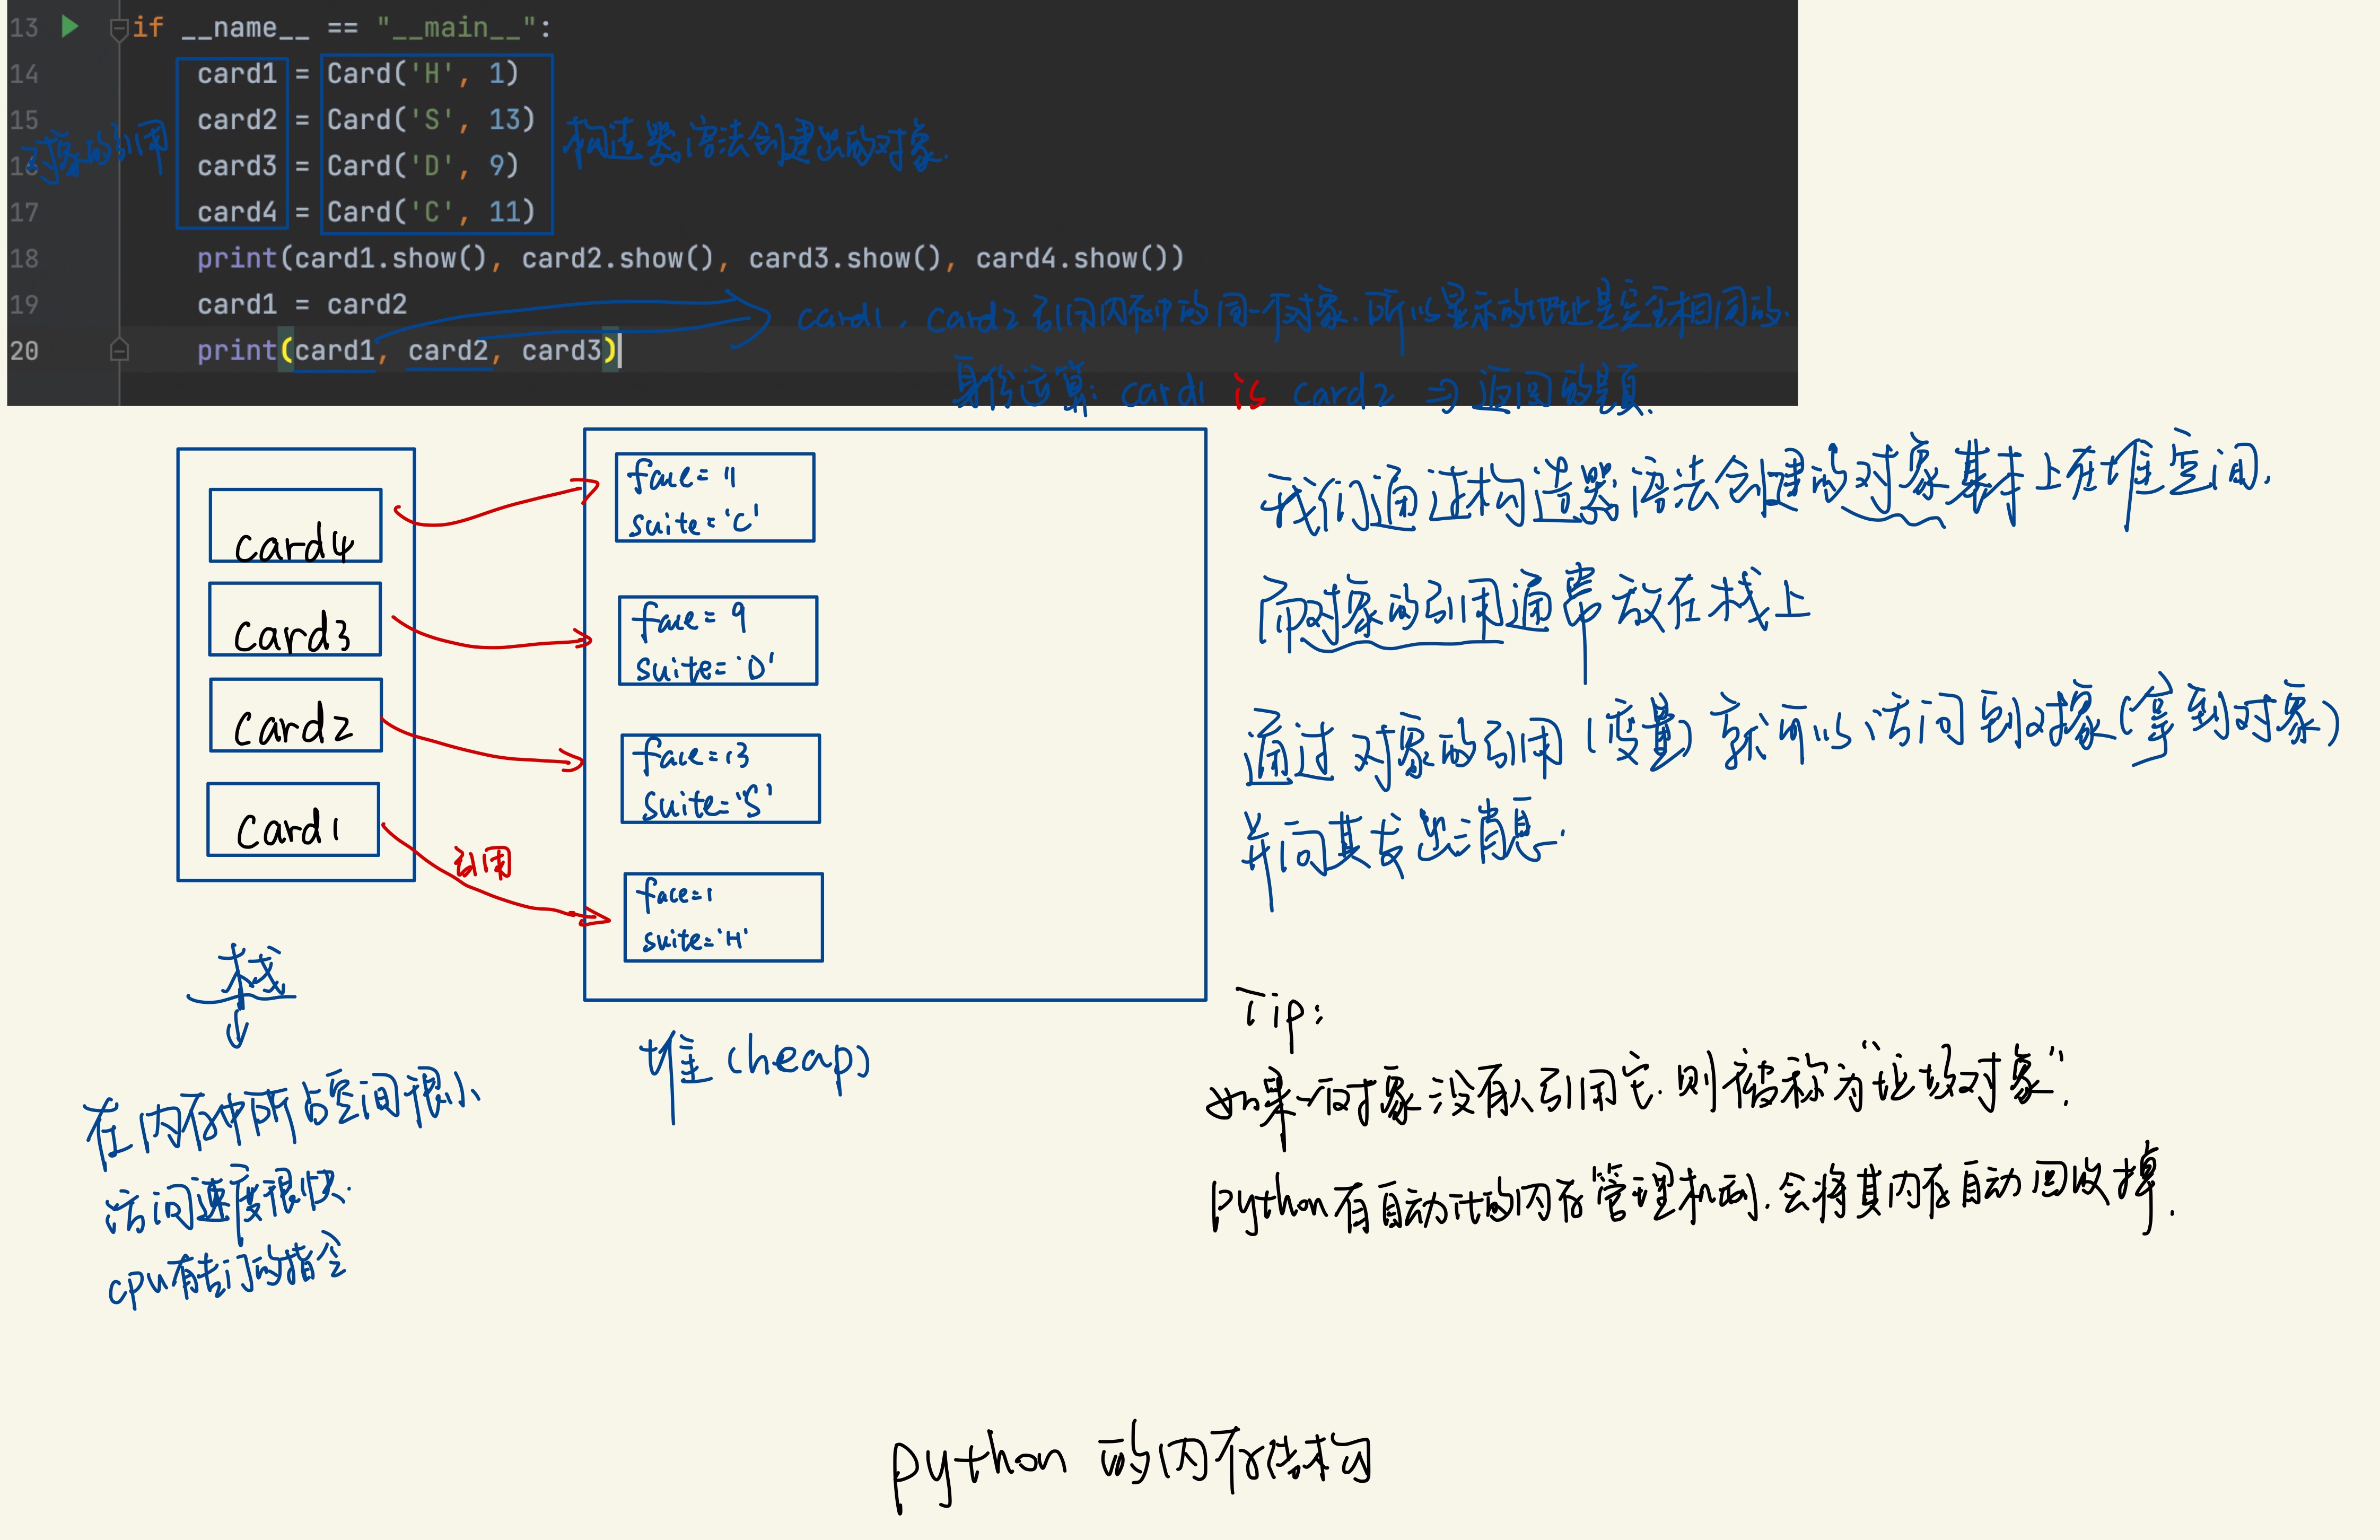 13 if __name__ == "__main__":
14 card1 = Card('H', 1)
15 card2 = Card('S', 13)
16 card3 = Card('D', 9)
17 card4 = Card('C', 11)
对象的引用
构造器语法创建出的对象.
18 print(card1.show(), card2.show(), card3.show(), card4.show())
19 card1 = card2
20 print(card1, card2, card3)
card1, card2引用内存中的同一个对象.所以显示的地址是完全相同的.
身份运算: card1 is card2 ⇒ 返回的是真.
card4
card3
card2
card1
引用
face=11
suite='C'
face=9
suite='D'
face=13
suite='S'
face=1
suite='H'
栈
在内存中所占空间很小
访问速度很快.
cpu有专门的指令
堆(heap)
我们通过构造器语法创建的对象基本上在堆空间.
而对象的引用通常放在栈上
通过对象的引用(变量)就可以访问到对象(拿到对象)
并向其发出消息.
Tip:
如果一个对象没有人引用它.则被称为"垃圾对象".
python有自动化的内存管理机制.会将其内存自动回收掉.
python 的内存结构